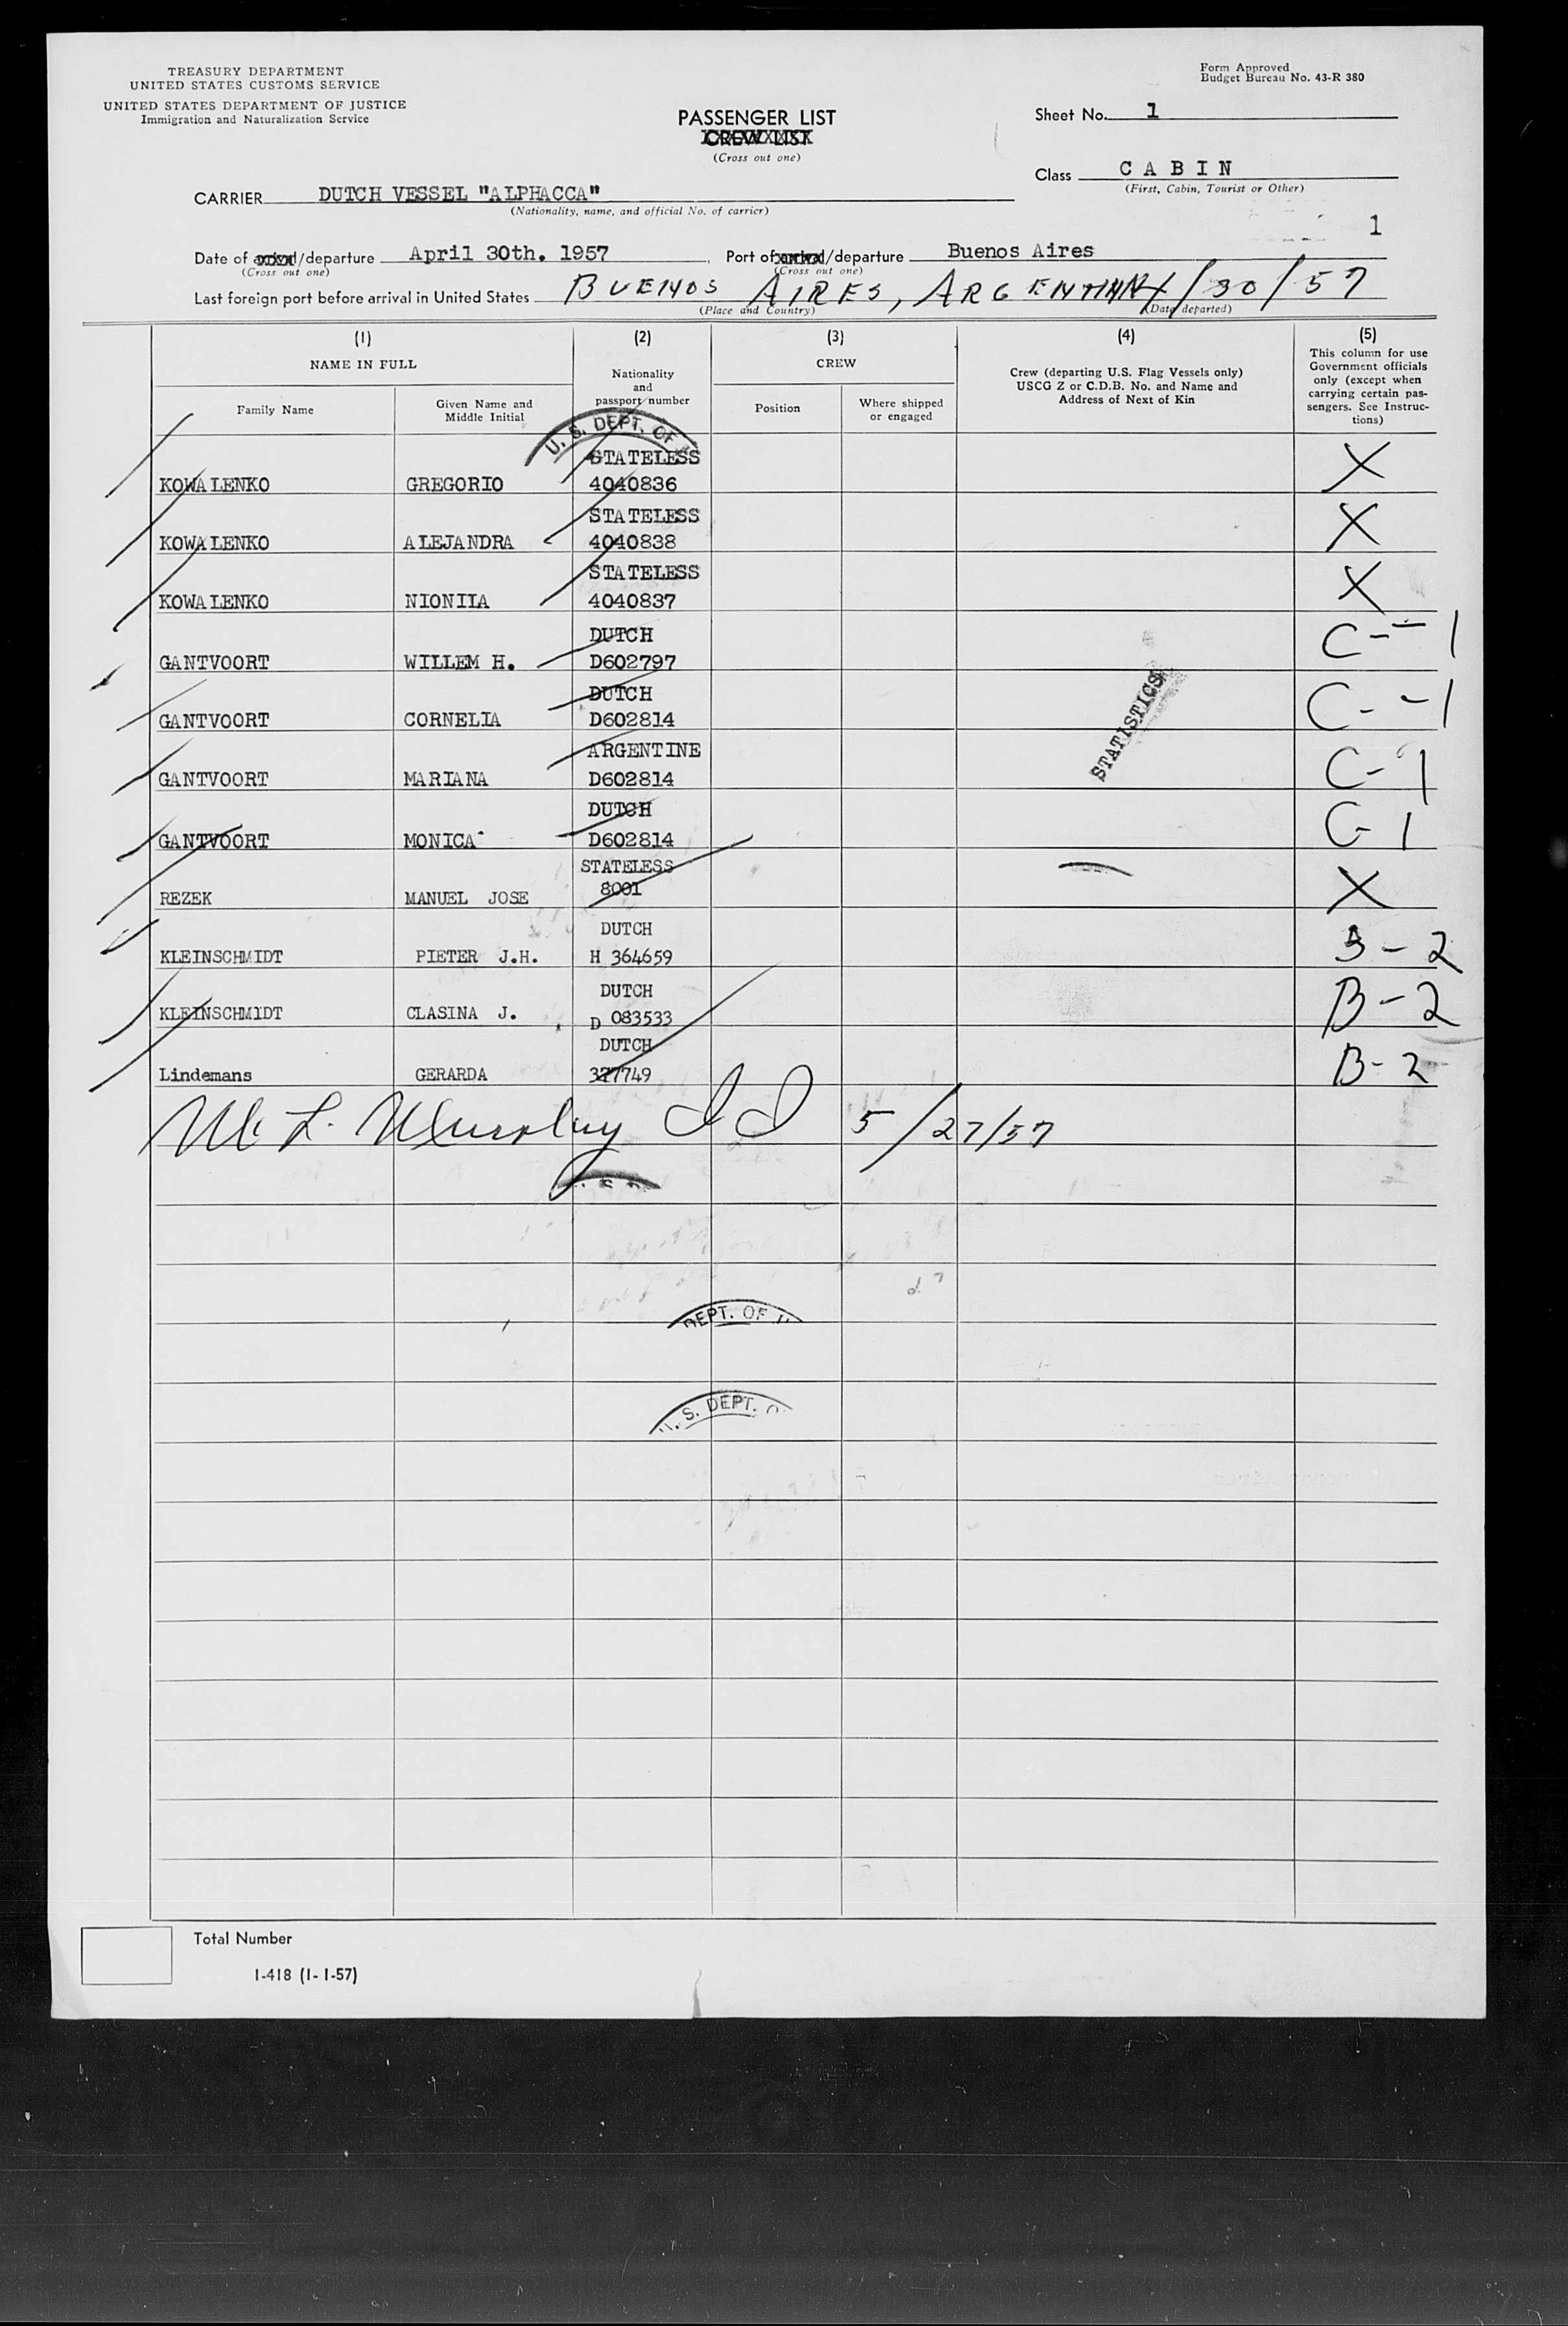 TREASURY DEPARTMENT
UNITED STATES CUSTOMS SERVICE
UNITED STATES DEPARTMENT OF JUSTICE
Immigration and Naturalization Service
Form Approved
Budget Bureau No. 43-R 380
PASSENGER LIST
CREW LIST
(Cross out one)
Sheet No. 1
Class CABIN
(First, Cabin, Tourist or Other)
CARRIER DUTCH VESSEL "ALPHACCA"
(Nationality, name, and official No. of carrier)
1
Date of /departure April 30th. 1957, Port of /departure Buenos Aires
(Cross out one) (Cross out one)
Last foreign port before arrival in United States BUENOS AIRES, ARGENTINA /30/57
(Place and Country) (Date departed)
(1) (2) (3) (4) (5)
NAME IN FULL
Family Name
Given Name and
Middle Initial
Nationality
and
passport number
CREW
Position
Where shipped
or engaged
Crew (departing U.S. Flag Vessels only)
USCG Z or C.D.B. No. and Name and
Address of Next of Kin
This column for use
Government officials
only (except when
carrying certain pas-
sengers. See Instruc-
tions)
U. S. DEPT. OF
STATELESS
KOWALENKO GREGORIO 4040836 X
STATELESS
KOWALENKO ALEJANDRA 4040838 X
STATELESS
KOWALENKO NIONILA 4040837 X
DUTCH
GANTVOORT WILLEM H. D602797 C--1
DUTCH
GANTVOORT CORNELIA D602814 C--1
ARGENTINE
GANTVOORT MARIANA D602814 C-1
DUTCH
GANTVOORT MONICA D602814 C-1
STATISTICS
STATELESS
8001
REZEK MANUEL JOSE X
DUTCH
KLEINSCHMIDT PIETER J.H. H 364659 B-2
DUTCH
KLEINSCHMIDT CLASINA J. D 083533 B-2
DUTCH
Lindemans GERARDA 327749 B-2
M L. Murphy II 5/27/57
DEPT. OF
U. S. DEPT. O
Total Number
I-418 (1-1-57)